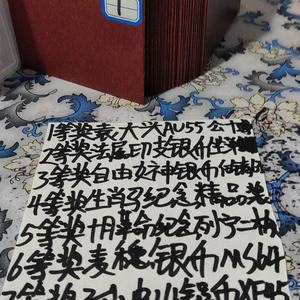 1
1等奖袁大头AU55公博
2等奖法属印支银币坐洋
3等奖自由女神银币
4等奖生肖马纪念精品装
5等奖十月革命纪念列宁一枚
6等奖麦穗银币MS64